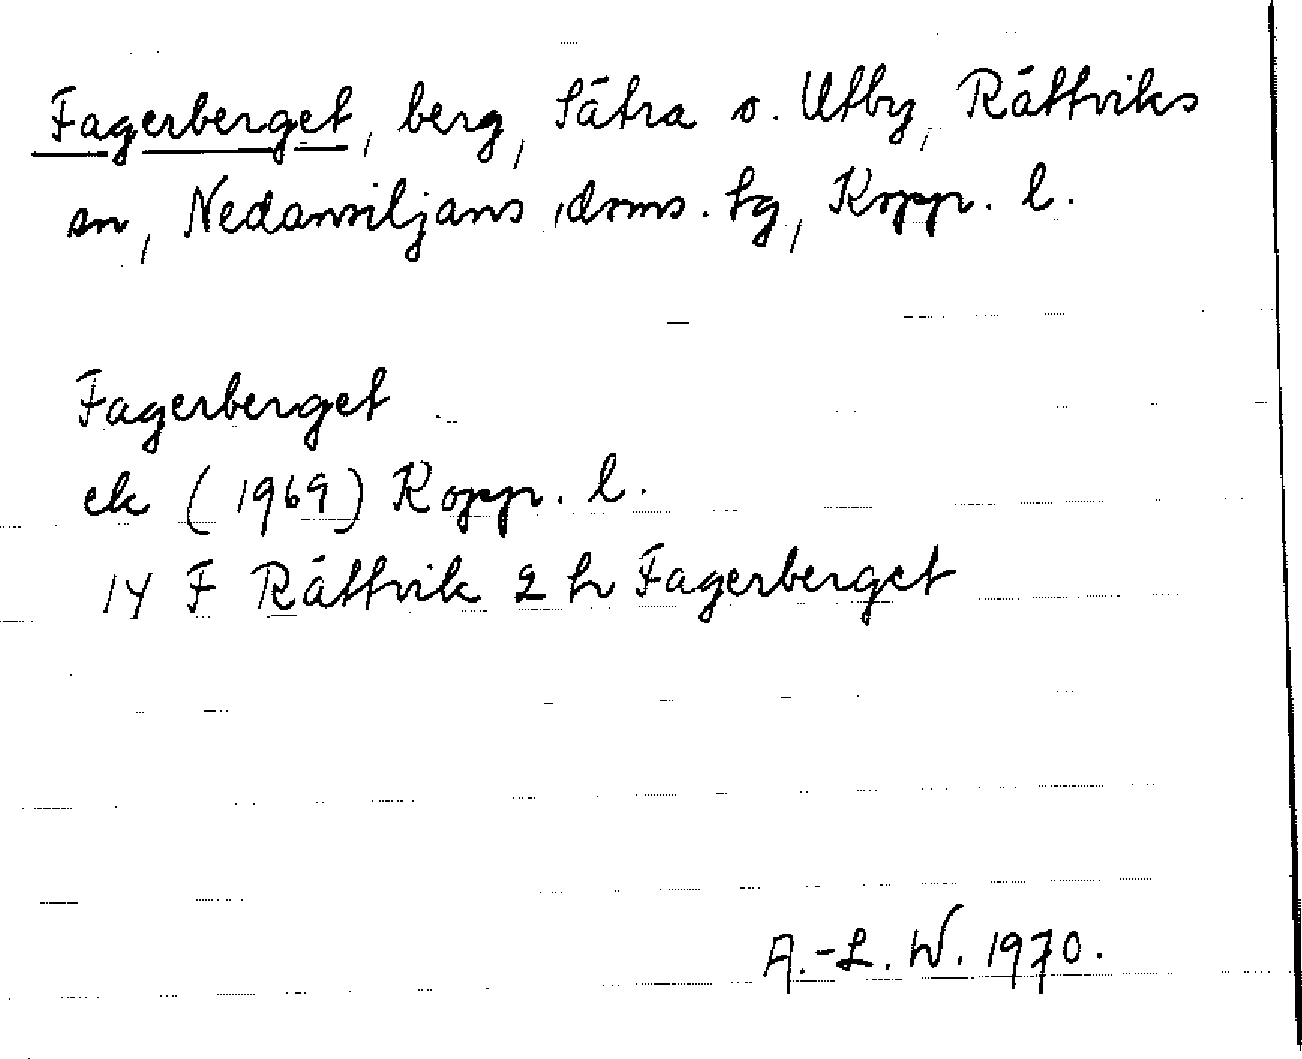 Fagerberget, berg, Sätra o. Utby, Rättviks
sn, Nedansiljans doms. tg, Kopp. l.
Fagerberget
ek (1969) Kopp. l.
14 F Rättvik 2 h Fagerberget
A.-L. W. 1970.